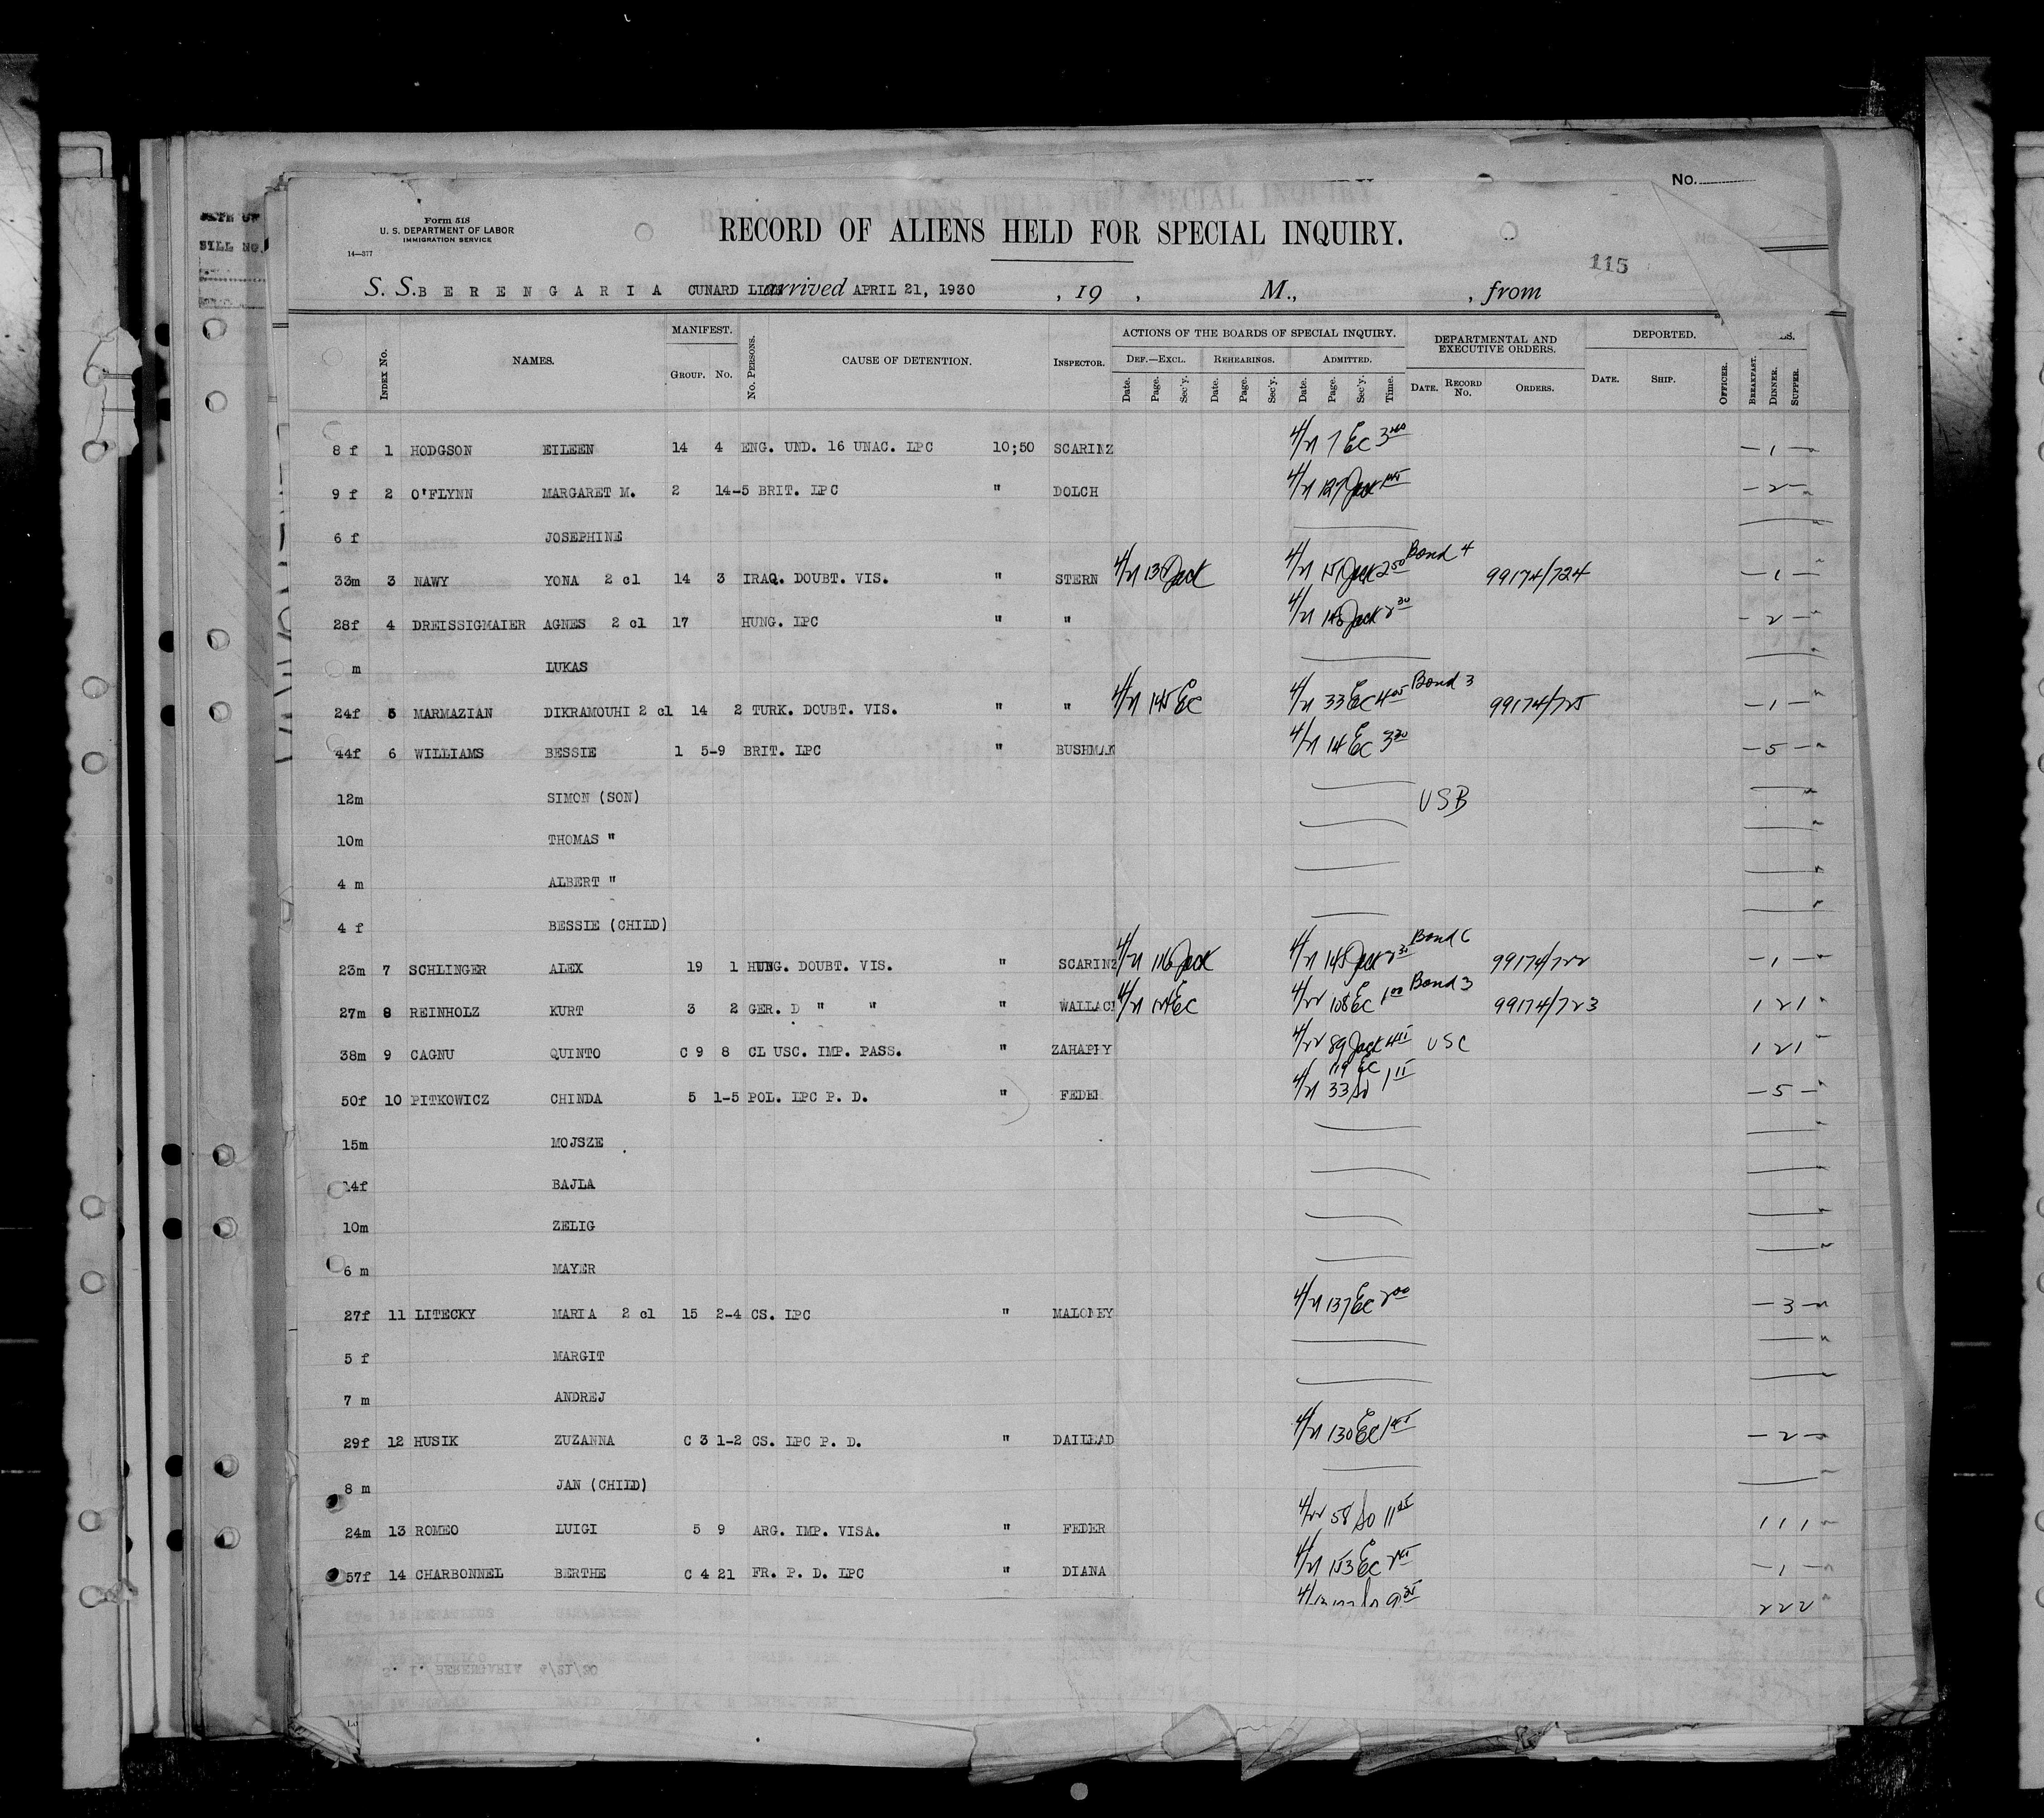 No.
Form 518
U. S. DEPARTMENT OF LABOR
IMMIGRATION SERVICE
14—377
RECORD OF ALIENS HELD FOR SPECIAL INQUIRY.
115
S. S. BERENGARIA CUNARD LINE arrived APRIL 21, 1930 , 19 , M., , from
INDEX No. NAMES. MANIFEST. GROUP. No. No. PERSONS. CAUSE OF DETENTION. INSPECTOR. ACTIONS OF THE BOARDS OF SPECIAL INQUIRY. DEPARTMENTAL AND EXECUTIVE ORDERS. DEPORTED.
DEF.—EXCL. REHEARINGS. ADMITTED.
Date. Page. Sec'y. Date. Page. Sec'y. Date. Page. Sec'y. Time. DATE. RECORD No. ORDERS. DATE. SHIP. OFFICER. BREAKFAST. DINNER. SUPPER.
8 f 1 HODGSON EILEEN 14 4 ENG. UND. 16 UNAC. LPC 10;50 SCARINZ 4/21 7 EC 3 40 — 1 —
9 f 2 O'FLYNN MARGARET M. 2 14-5 BRIT. LPC " DOLCH 4/21 127 Jack — 2 —
6 f JOSEPHINE
33m 3 NAWY YONA 2 cl 14 3 IRAQ. DOUBT. VIS. " STERN 4/21 Jack 4/21 Jack 2 50 Bond 4 99174/724 — 1 —
28f 4 DREISSIGMAIER AGNES 2 cl 17 HUNG. LPC " " 4/21 Jack 2 30 — 2 —
m LUKAS
24f 5 MARMAZIAN DIKRAMOUHI 2 cl 14 2 TURK. DOUBT. VIS. " " 4/21 145 EC 4/21 33 EC Bond 3 99174/725 — 1 —
44f 6 WILLIAMS BESSIE 1 5-9 BRIT. LPC " BUSHMAN 4/21 14 EC 3 30 — 5 —
12m SIMON (SON) USB
10m THOMAS "
4 m ALBERT "
4 f BESSIE (CHILD)
23m 7 SCHLINGER ALEX 19 1 HUNG. DOUBT. VIS. " SCARINZ 4/21 116 Jack 4/21 Jack 2 30 Bond 6 99174/722 — 1 —
27m 8 REINHOLZ KURT 3 2 GER. D " " " WALLACH 4/21 EC 4/22 108 EC 1 00 Bond 3 99174/723 1 2 1
38m 9 CAGNU QUINTO C 9 8 CL USC. IMP. PASS. " ZAHAPHY 4/22 89 Jack USC 1 2 1
119 EC
50f 10 PITKOWICZ CHINDA 5 1-5 POL. LPC P. D. " FEDER 4/21 33 — 5 —
15m MOJSZE
14f BAJLA
10m ZELIG
6 m MAYER
27f 11 LITECKY MARIA 2 cl 15 2-4 CS. LPC " MALONEY 4/21 137 EC 2 00 — 3 —
5 f MARGIT
7 m ANDREJ
29f 12 HUSIK ZUZANNA C 3 1-2 CS. LPC P. D. " DAILEAD 4/21 130 EC — 2 —
8 m JAN (CHILD)
24m 13 ROMEO LUIGI 5 9 ARG. IMP. VISA. " FEDER 4/22 58 1 1 1
57f 14 CHARBONNEL BERTHE C 4 21 FR. P. D. LPC " DIANA 4/21 153 EC — 1 —
2 2 2